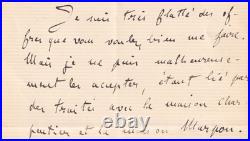 Je suis très flatté des of-
fres que vous voulez bien me faire.
Mais je ne puis malheureuse-
ment les accepter, étant lié par
des traités avec la maison Char-
pentier et la maison Marpon.